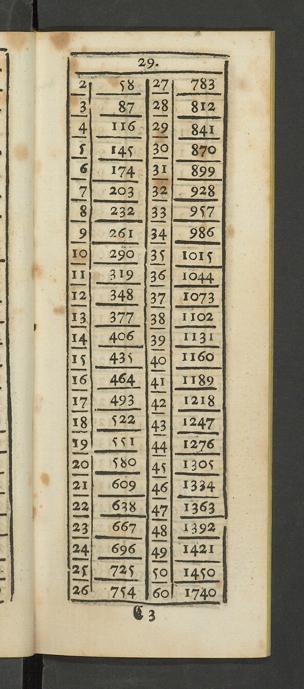 29.
2 58 27 783
3 87 28 812
4 116 29 841
5 145 30 870
6 174 31 899
7 203 32 928
8 232 33 957
9 261 34 986
10 290 35 1015
11 319 36 1044
12 348 37 1073
13 377 38 1102
14 406 39 1131
15 435 40 1160
16 464 41 1189
17 493 42 1218
18 522 43 1247
19 551 44 1276
20 580 45 1305
21 609 46 1334
22 638 47 1363
23 667 48 1392
24 696 49 1421
25 725 50 1450
26 754 60 1740
C 3